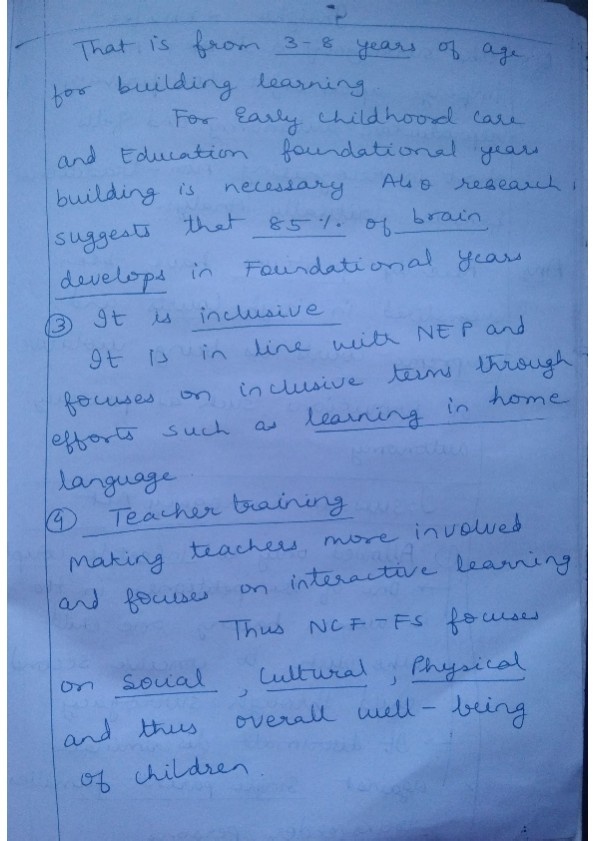 That is from 3-8 years of age
for building learning
For Early childhood care
and Education foundational years
building is necessary Also research
suggests that 85% of brain
develops in Foundational Years
③ It is inclusive
It is in line with NEP and
focuses on inclusive terms through
efforts such as learning in home
language
④ Teacher training
Making teachers more involved
and focuses on interactive learning
Thus NCF-FS focuses
on Social, Cultural, Physical
and thus overall well-being
of children.